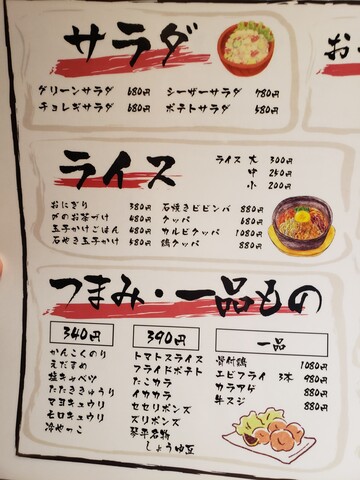 サラダ
グリーンサラダ 680円 シーザーサラダ 780円
チョレギサラダ 680円 ポテトサラダ 580円
ライス
ライス 大 300円
中 250円
小 200円
おにぎり 380円 石焼きビビンバ 880円
〆のお茶づけ 480円 クッパ 680円
玉子かけごはん 480円 カルビクッパ 1080円
石やき玉子かけ 580円 鶏クッパ 880円
つまみ・一品もの
340円
かんこくのり
えだまめ
塩キャベツ
たたききゅうり
マヨキュウリ
モロキュウリ
冷やっこ
390円
トマトスライス
フライドポテト
たこカラ
イカカラ
セセリポンズ
ズリポンズ
琴平名物
しょうゆ豆
一品
骨付鶏 1080円
エビフライ 3本 980円
カラアゲ 880円
牛スジ 880円